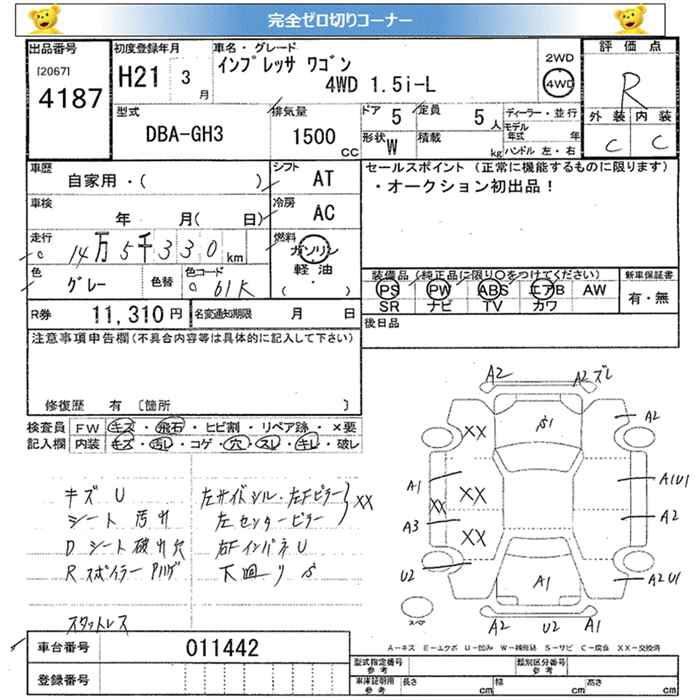 完全ゼロ切りコーナー
出品番号 初度登録年月 車名・グレード 評価点
[2067] 4187 H21 3月 インプレッサ ワゴン 2WD
4WD 1.5i-L 4WD R
型式 排気量 ドア 5 定員 5人 ディーラー・並行 外装 内装
DBA-GH3 1500cc 形状 W 積載 kg モデル年式 年 C C
ハンドル 左・右
車歴 自家用・( ) シフト AT セールスポイント (正常に機能するものに限ります)
・オークション初出品!
車検 年 月( 日) 冷房 AC
走行 14万5千330km 燃料 ガソリン
軽油
( ・ )
色 グレー 色替 色コード 61K 装備品 (純正品に限り○をつけてください) 新車保証書
PS PW ABS エアB AW 有・無
SR ナビ TV カワ
R券 11,310円 名変通知期限 月 日 後日品
注意事項申告欄(不具合内容等は具体的に記入して下さい)
修復歴 有 [箇所 ]
検査員 FW キズ・飛石・ヒビ割・リペア跡・×要
記入欄 内装 キズ・汚し・コゲ・穴・スレ・キレ・破レ
キズ U 左サイドシル・左Fピラー XX
シート 汚れ 左センターピラー
D シート破れ穴 右FインパネU
R スポイラー 下廻りS
スタットレス
A2 A2 ズレ
XX S1 A2
A1 XX XX A1U1
A3 XX A2
U2 A1 A2U1
スペア A2 U2 A1
A-キズ E-エクボ U-凹み W-補修跡 S-サビ C-腐食 XX-交換済
車台番号 011442
登録番号
型式指定番号 参考 類別区分番号 参考
車庫証明用 参考 長さ cm 幅 cm 高さ cm